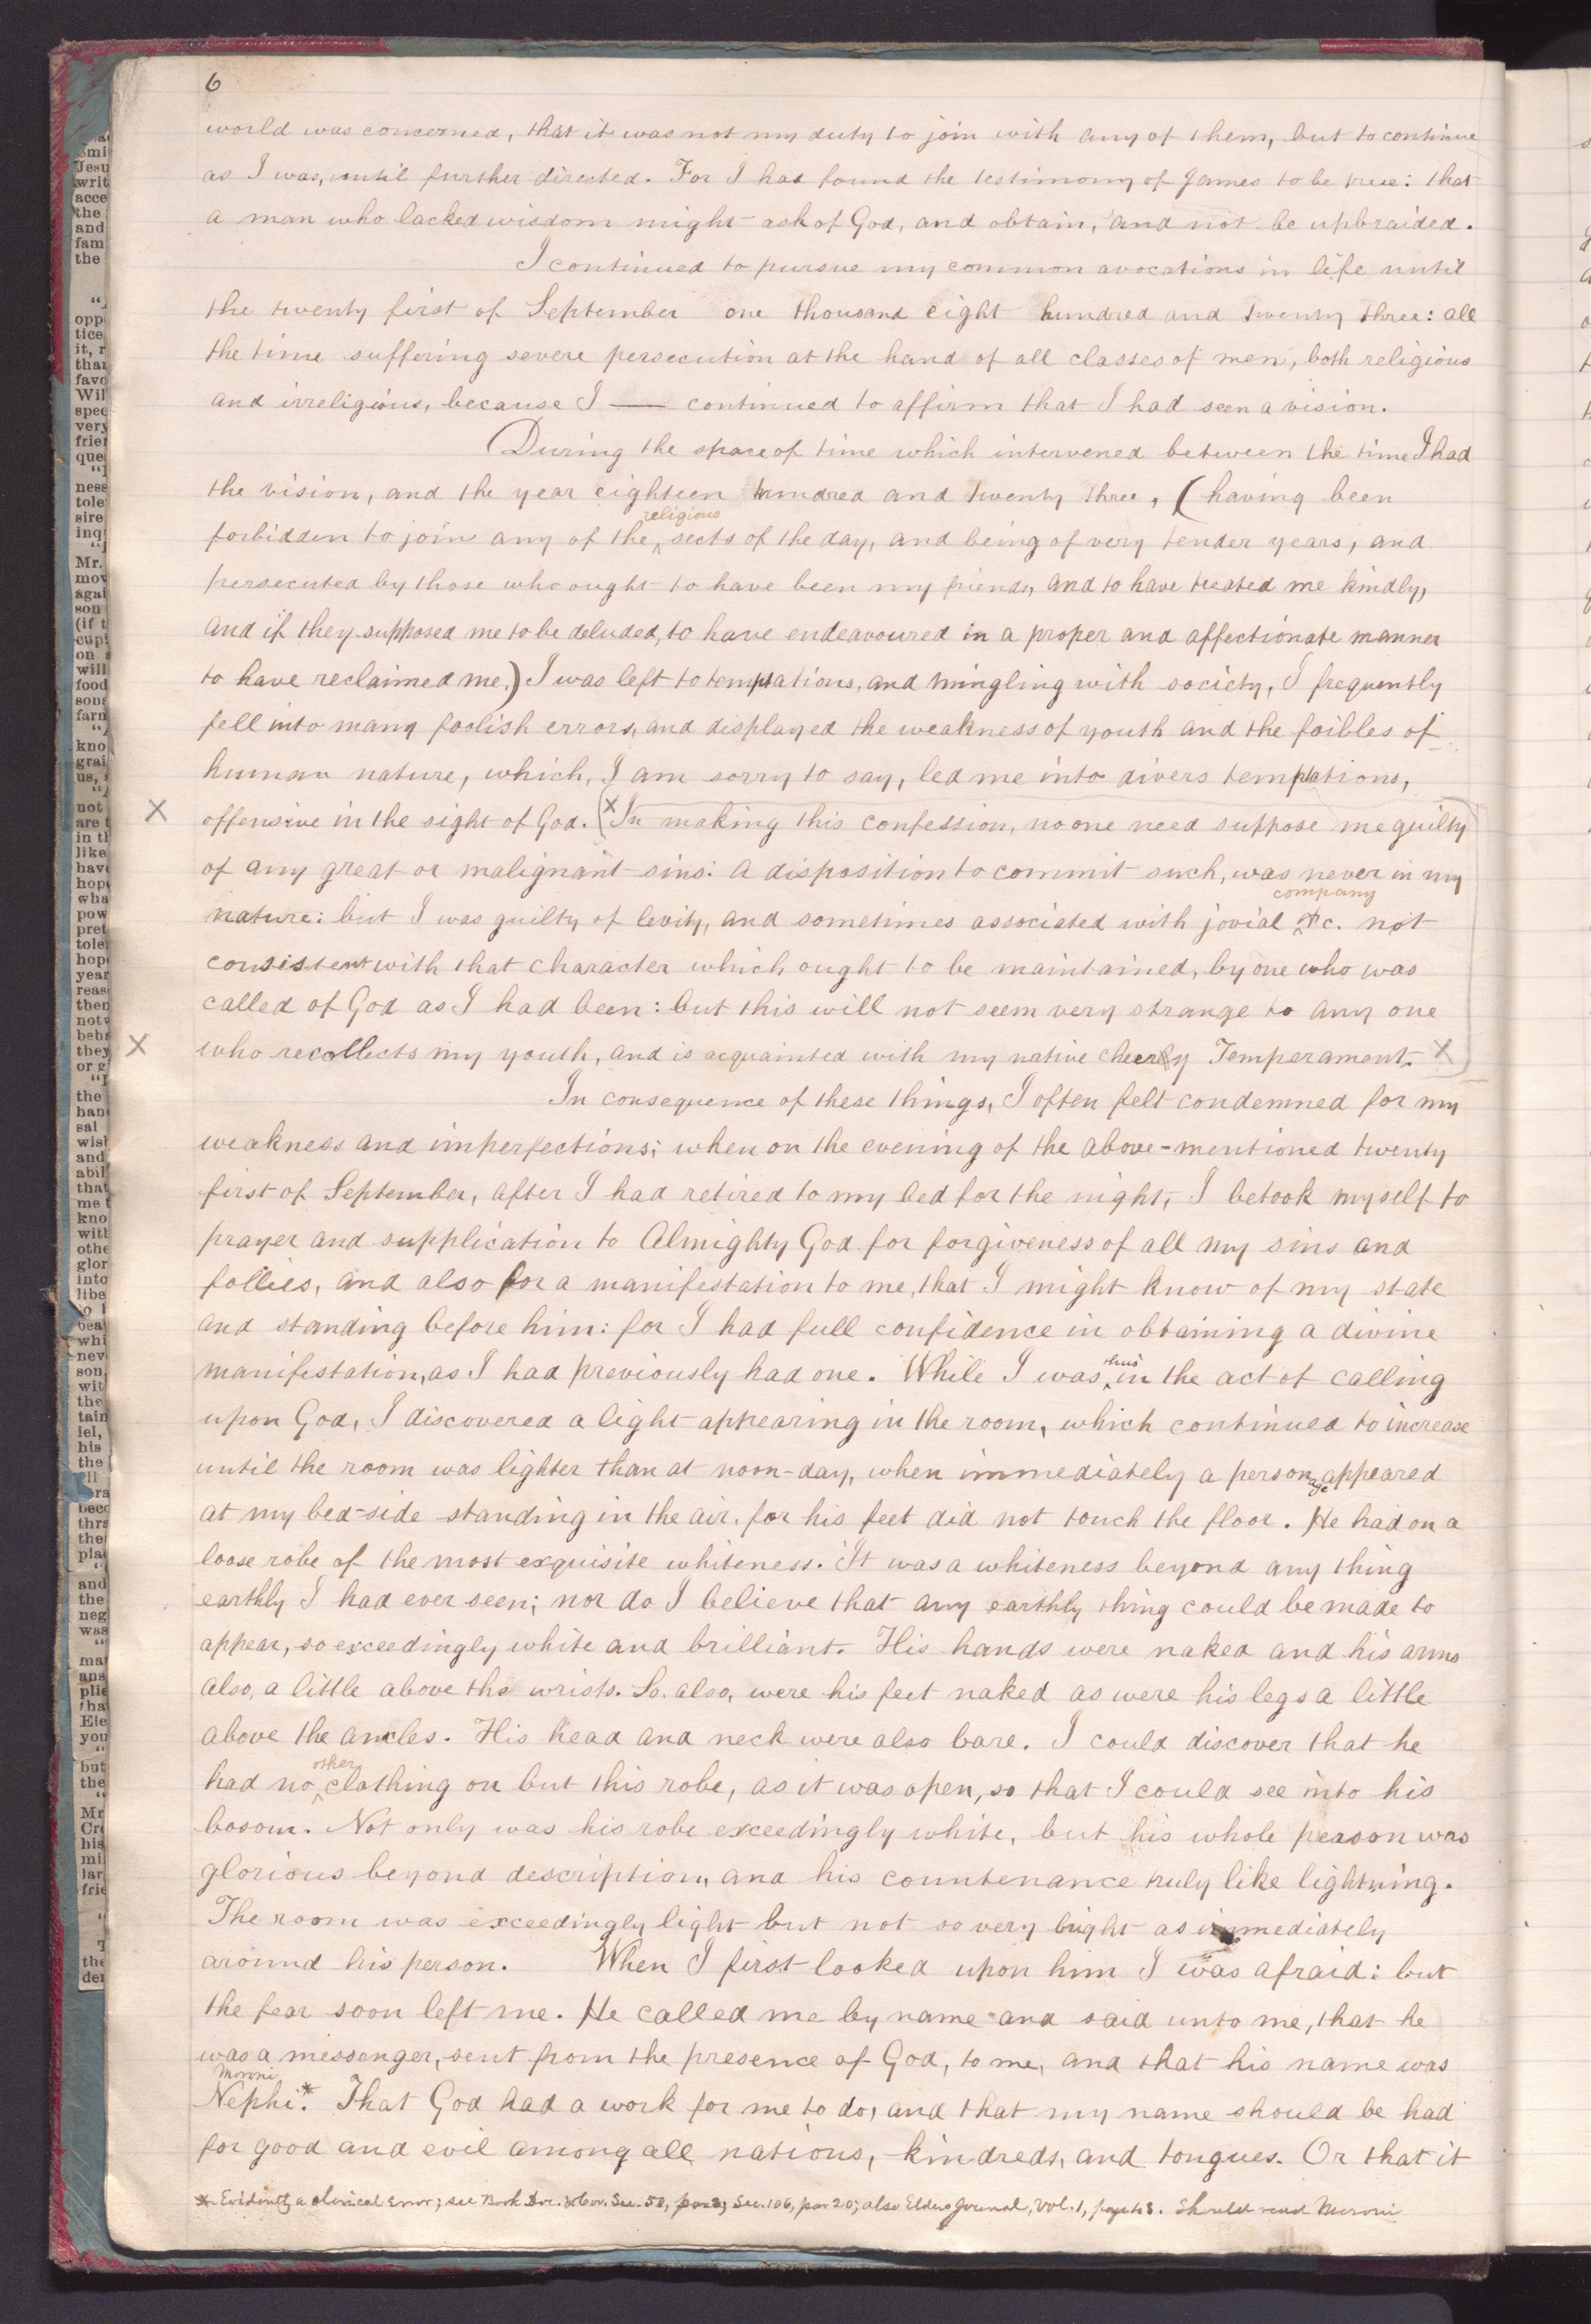 6
world was concerned, that it was not my duty to join with any of them, but to continue
as I was, until further directed. For I had found the testimony of James to be true: that
a man who lacked wisdom might ask of God, and obtain, and not be upbraided.
I continued to pursue my common avocations in life until
the twenty first of September one thousand eight hundred and twenty three: all
the time suffering severe persecution at the hand of all classes of men, both religious
and irreligious, because I — continued to affirm that I had seen a vision.
During the space of time which intervened between the time I had
the vision, and the year eighteen hundred and twenty three, (having been
religious
forbidden to join any of the ‸ sects of the day, and being of very tender years, and
persecuted by those who ought to have been my friends, and to have treated me kindly,
and if they supposed me to be deluded, to have endeavoured in a proper and affectionate manner
to have reclaimed me,) I was left to temptations, and mingling with society, I frequently
fell into many foolish errors, and displayed the weakness of youth and the foibles of
human nature, which, I am sorry to say, led me into divers temptations,
X offensive in the sight of God. (X In making this confession, no one need suppose me guilty
of any great or malignant sins: a disposition to commit such, was never in my
company
nature: but I was guilty of levity, and sometimes associated with jovial ‸ &c. not
consistent with that character which ought to be maintained, by one who was
called of God as I had been: but this will not seem very strange to any one
X who recollects my youth, and is acquainted with my native cheery Temperament. X)
In consequence of these things, I often felt condemned for my
weakness and imperfections; when on the evening of the above-mentioned twenty
first of September, after I had retired to my bed for the night, I betook myself to
prayer and supplication to Almighty God for forgiveness of all my sins and
follies, and also for a manifestation to me, that I might know of my state
and standing before him: for I had full confidence in obtaining a divine
thus
manifestation, as I had previously had one. While I was ‸ in the act of calling
upon God, I discovered a light appearing in the room, which continued to increase
until the room was lighter than at noon-day, when immediately a personage appeared
at my bed-side standing in the air, for his feet did not touch the floor. He had on a
loose robe of the most exquisite whiteness. It was a whiteness beyond any thing
earthly I had ever seen; nor do I believe that any earthly thing could be made to
appear, so exceedingly white and brilliant. His hands were naked and his arms
also, a little above the wrists. So. also, were his feet naked as were his legs a little
above the ancles. His head and neck were also bare. I could discover that he
other
had no ‸ clothing on but this robe, as it was open, so that I could see into his
bosom. Not only was his robe exceedingly white, but his whole person was
glorious beyond description, and his countenance truly like lightning.
The room was exceedingly light but not so very bright as immediately
around his person. When I first looked upon him I was afraid: but
the fear soon left me. He called me by name and said unto me, that he
was a messenger, sent from the presence of God, to me, and that his name was
Moroni
Nephi.* That God had a work for me to do, and that my name should be had
for good and evil among all nations, kindreds, and tongues. Or that it
* Evidently a clerical error; see Book Doc. & Cov. Sec. 50, par 2; Sec. 106, par 20; also Elders Journal, Vol. 1, page 43. Should read Moroni